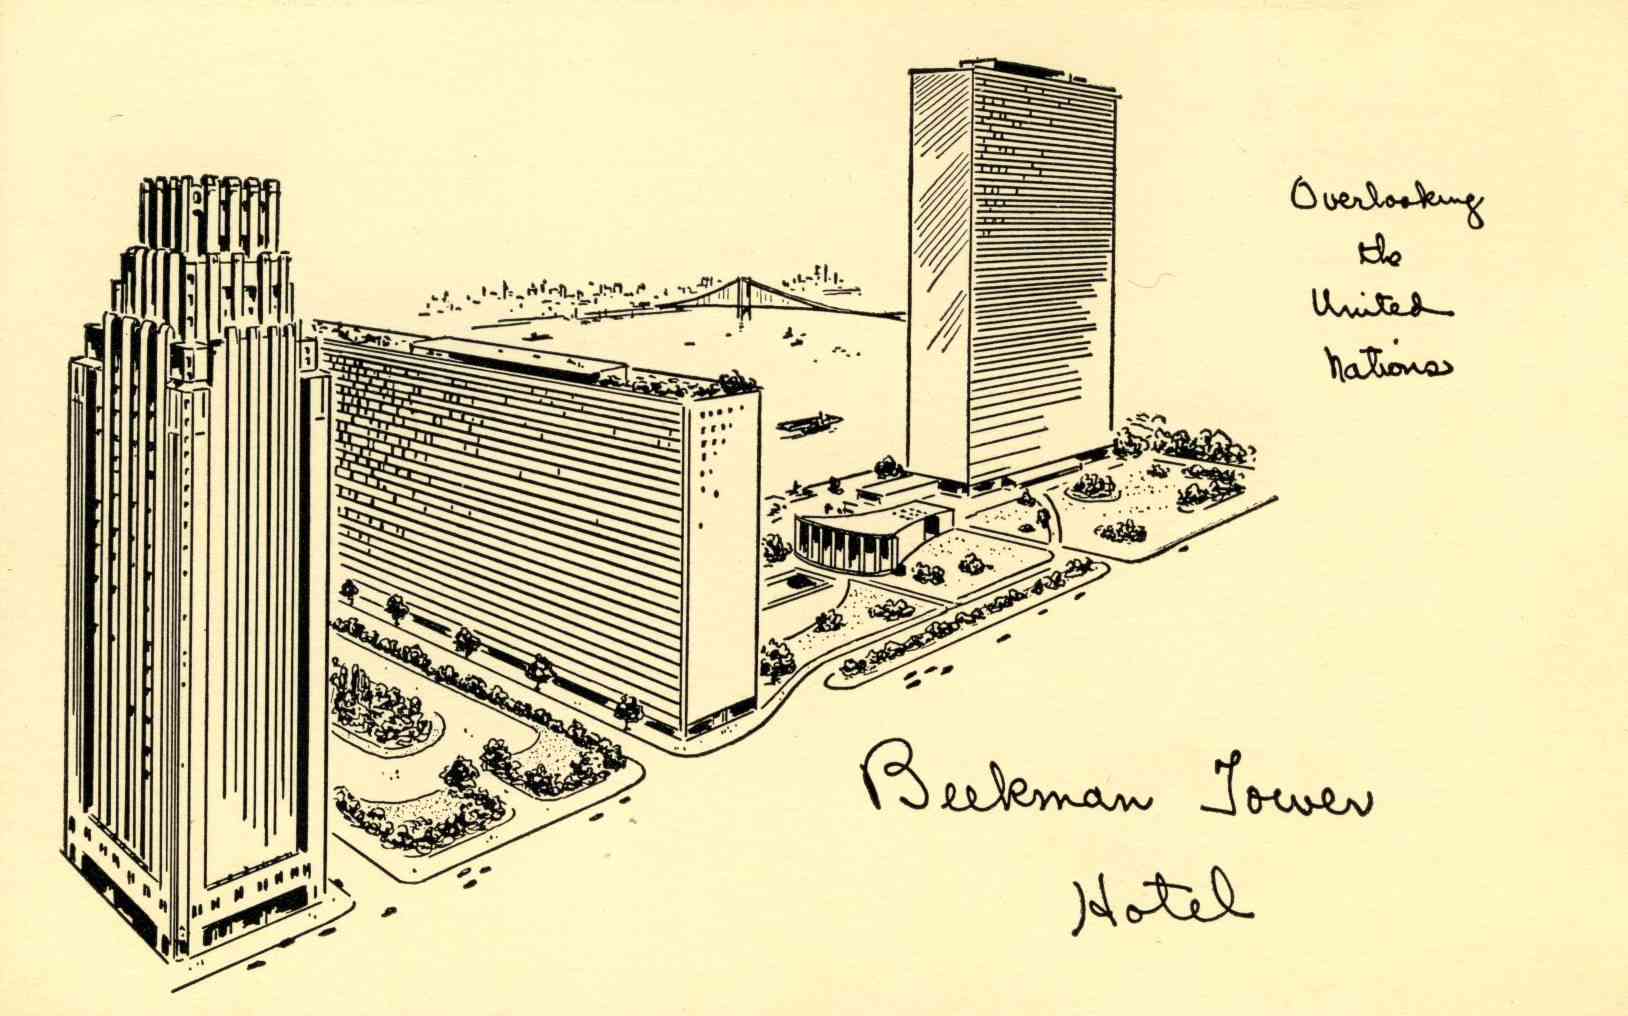 Overlooking
the
United
Nations
Beekman Tower
Hotel